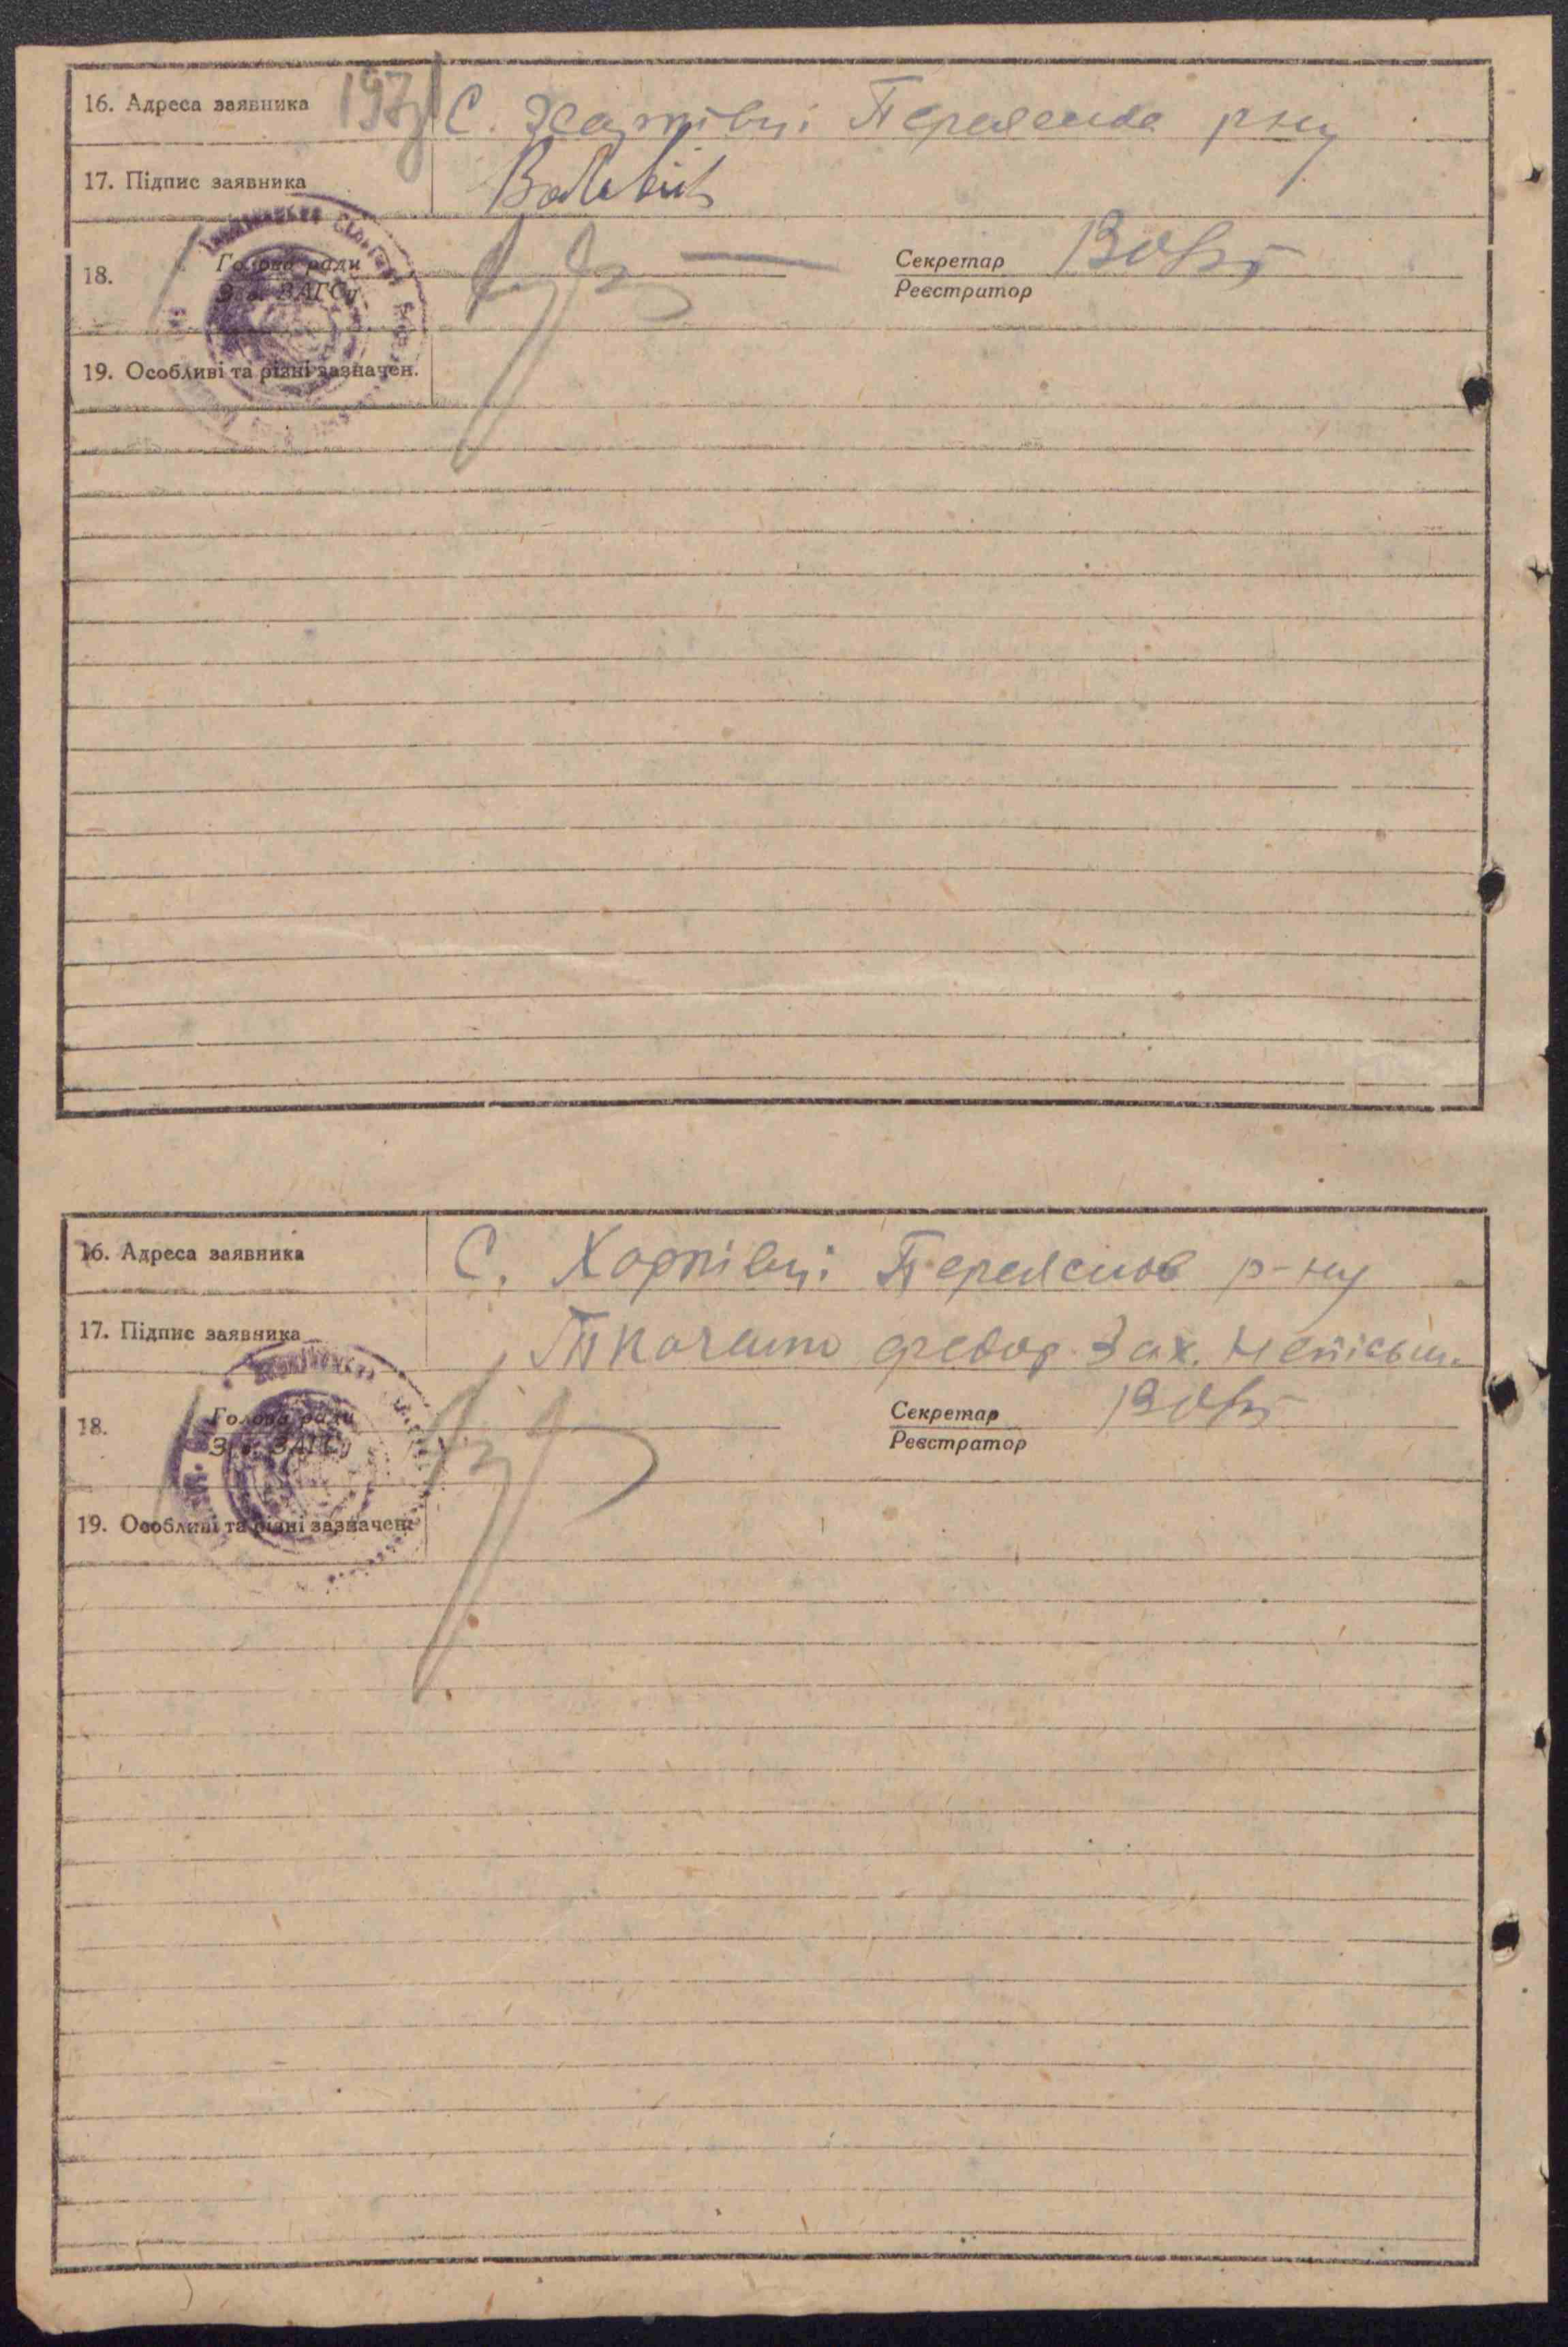 16. Адреса заявника
197
С. Харківці Переяслов р-ну
17. Підпис заявника
18. Голова ради
Зав. ЗАГСу
Секретар
Реєстратор
19. Особливі та різні зазначен.
16. Адреса заявника
С. Харківці Переяслов р-ну
17. Підпис заявника
Ткаченко федор Зах. неписьм.
18. Голова ради
Зав. ЗАГСу
Секретар
Реєстратор
19. Особливі та різні зазначен.